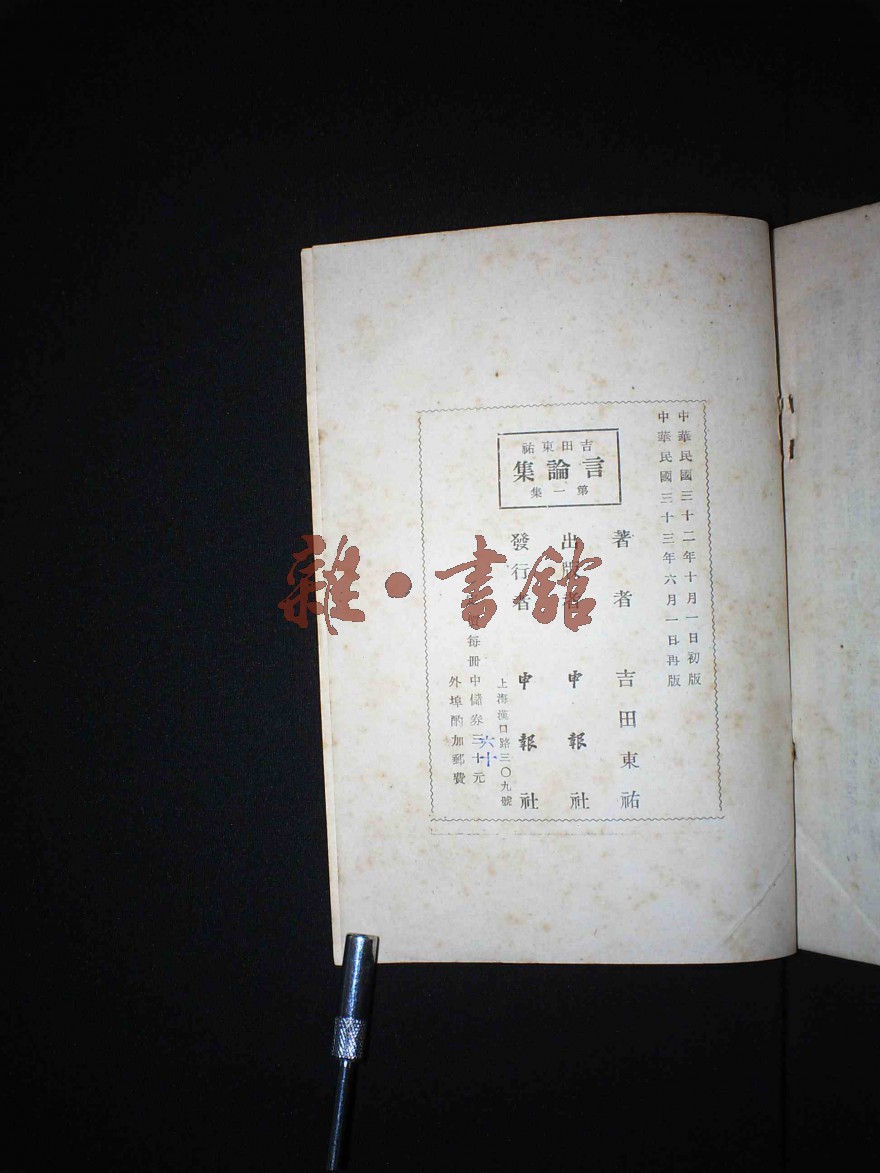 中華民國三十二年十月一日初版
中華民國三十三年六月一日再版
吉田東祐
言論集
第一集
著者 吉田東祐
出版者 申報社
發行者 申報社
上海漢口路三〇九號
每冊中儲券三十元
六十
外埠酌加郵費
雜·書館